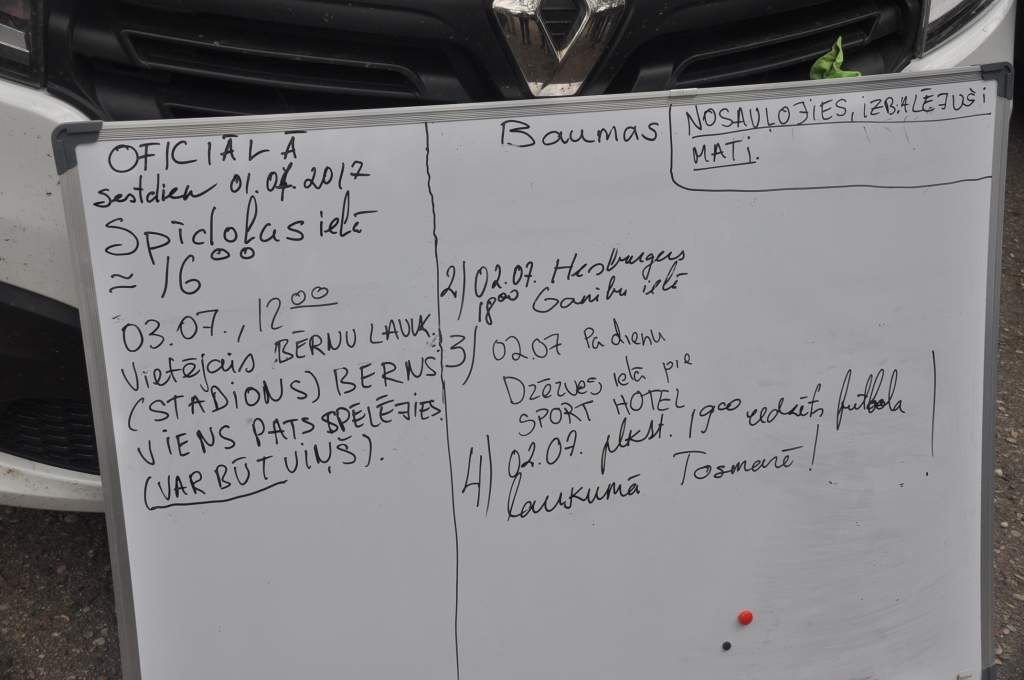 OFICIĀLĀ
sestdien 01.07.2017
Spīdolas ielā
≈ 16⁰⁰
03.07., 12⁰⁰
Vietējais BĒRNU LAUK.
(STADIONS) BĒRNS
VIENS PATS SPĒLĒJIES.
(VAR BŪT VIŅŠ).
Baumas
NOSAUĻOJIES, IZBALĒJUŠI
MATI.
2) 02.07. Hesburgers
18⁰⁰ Ganību ielā
3) 02.07 Pa dienu
Dzērves ielā pie
SPORT HOTEL
4) 02.07. plkst. 19⁰⁰ redzēts futbola
laukumā Tosmarē!